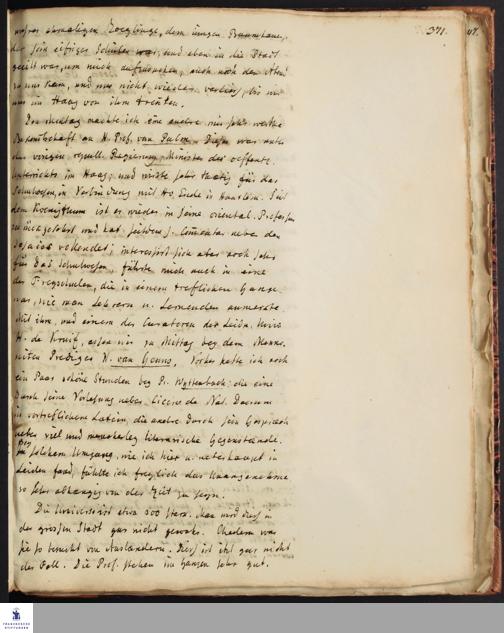 371.
unsres ehemaligen Zoeglings, dem jungen
der sein eifriger Schüler war, und eben in die Stadt
geeilt war, um mich aufzusuchen, auch nach der
zu uns kam, und uns nicht wieder verliess, bis wir
uns im Haag von ihm trennten.
Den Mittag machte ich eine andre mir sehr werthe
Bekantschaft an H. Prof. van Palm. Dieser war unter
der vorigen republ. Regierung Minister des oeffentl.
Unterrichts im Haag, und wirkte sehr thaetig für das
Schulwesen, in Verbindung mit Hr. Ende in Haarlem. Seit
dem Koenigthum ist er wieder in seine oriental. Professur
zurückgekehrt und hat seitdem s. Commentar ueber den
Jesaias vollendet; interessirt sich aber noch sehr
für das Schulwesen, führte mich auch in eine
der Freyschulen, die in einem treflichen Gange
war, wie man Lehrern u. Lernenden anmerkte.
Mit ihm, und einem der Curatoren der Leidn. Univ.
H. de Kruif, assen wir zu Mittag bey dem Menno-
niten Prediger H. van Geuns. Vorher hatte ich noch
ein Paar schöne Stunden bey Pr. Wyttenbach; die eine
durch seine Vorlesung ueber Cicero de Nat. Deorum
in vortreflichem Latein, die andre durch sein Gespraech
ueber viel und mancherley literarische Gegenstaende.
Bey solchem Umgang, wie ich hier u. ueberhaupt in
Leiden fand, fühlte ich freylich das Unangenehme
so sehr abhangig von der Zeit zu seyn.
Die Universität etwa 300 stark. Man wird diess in
der grossen Stadt gar nicht gewahr. Ehedem war
sie so besucht von Auslaendern. Diess ist itzt gar nicht
der Fall. Die Prof. stehen im Ganzen sehr gut.
47.
FRANCKESCHE
STIFTUNGEN